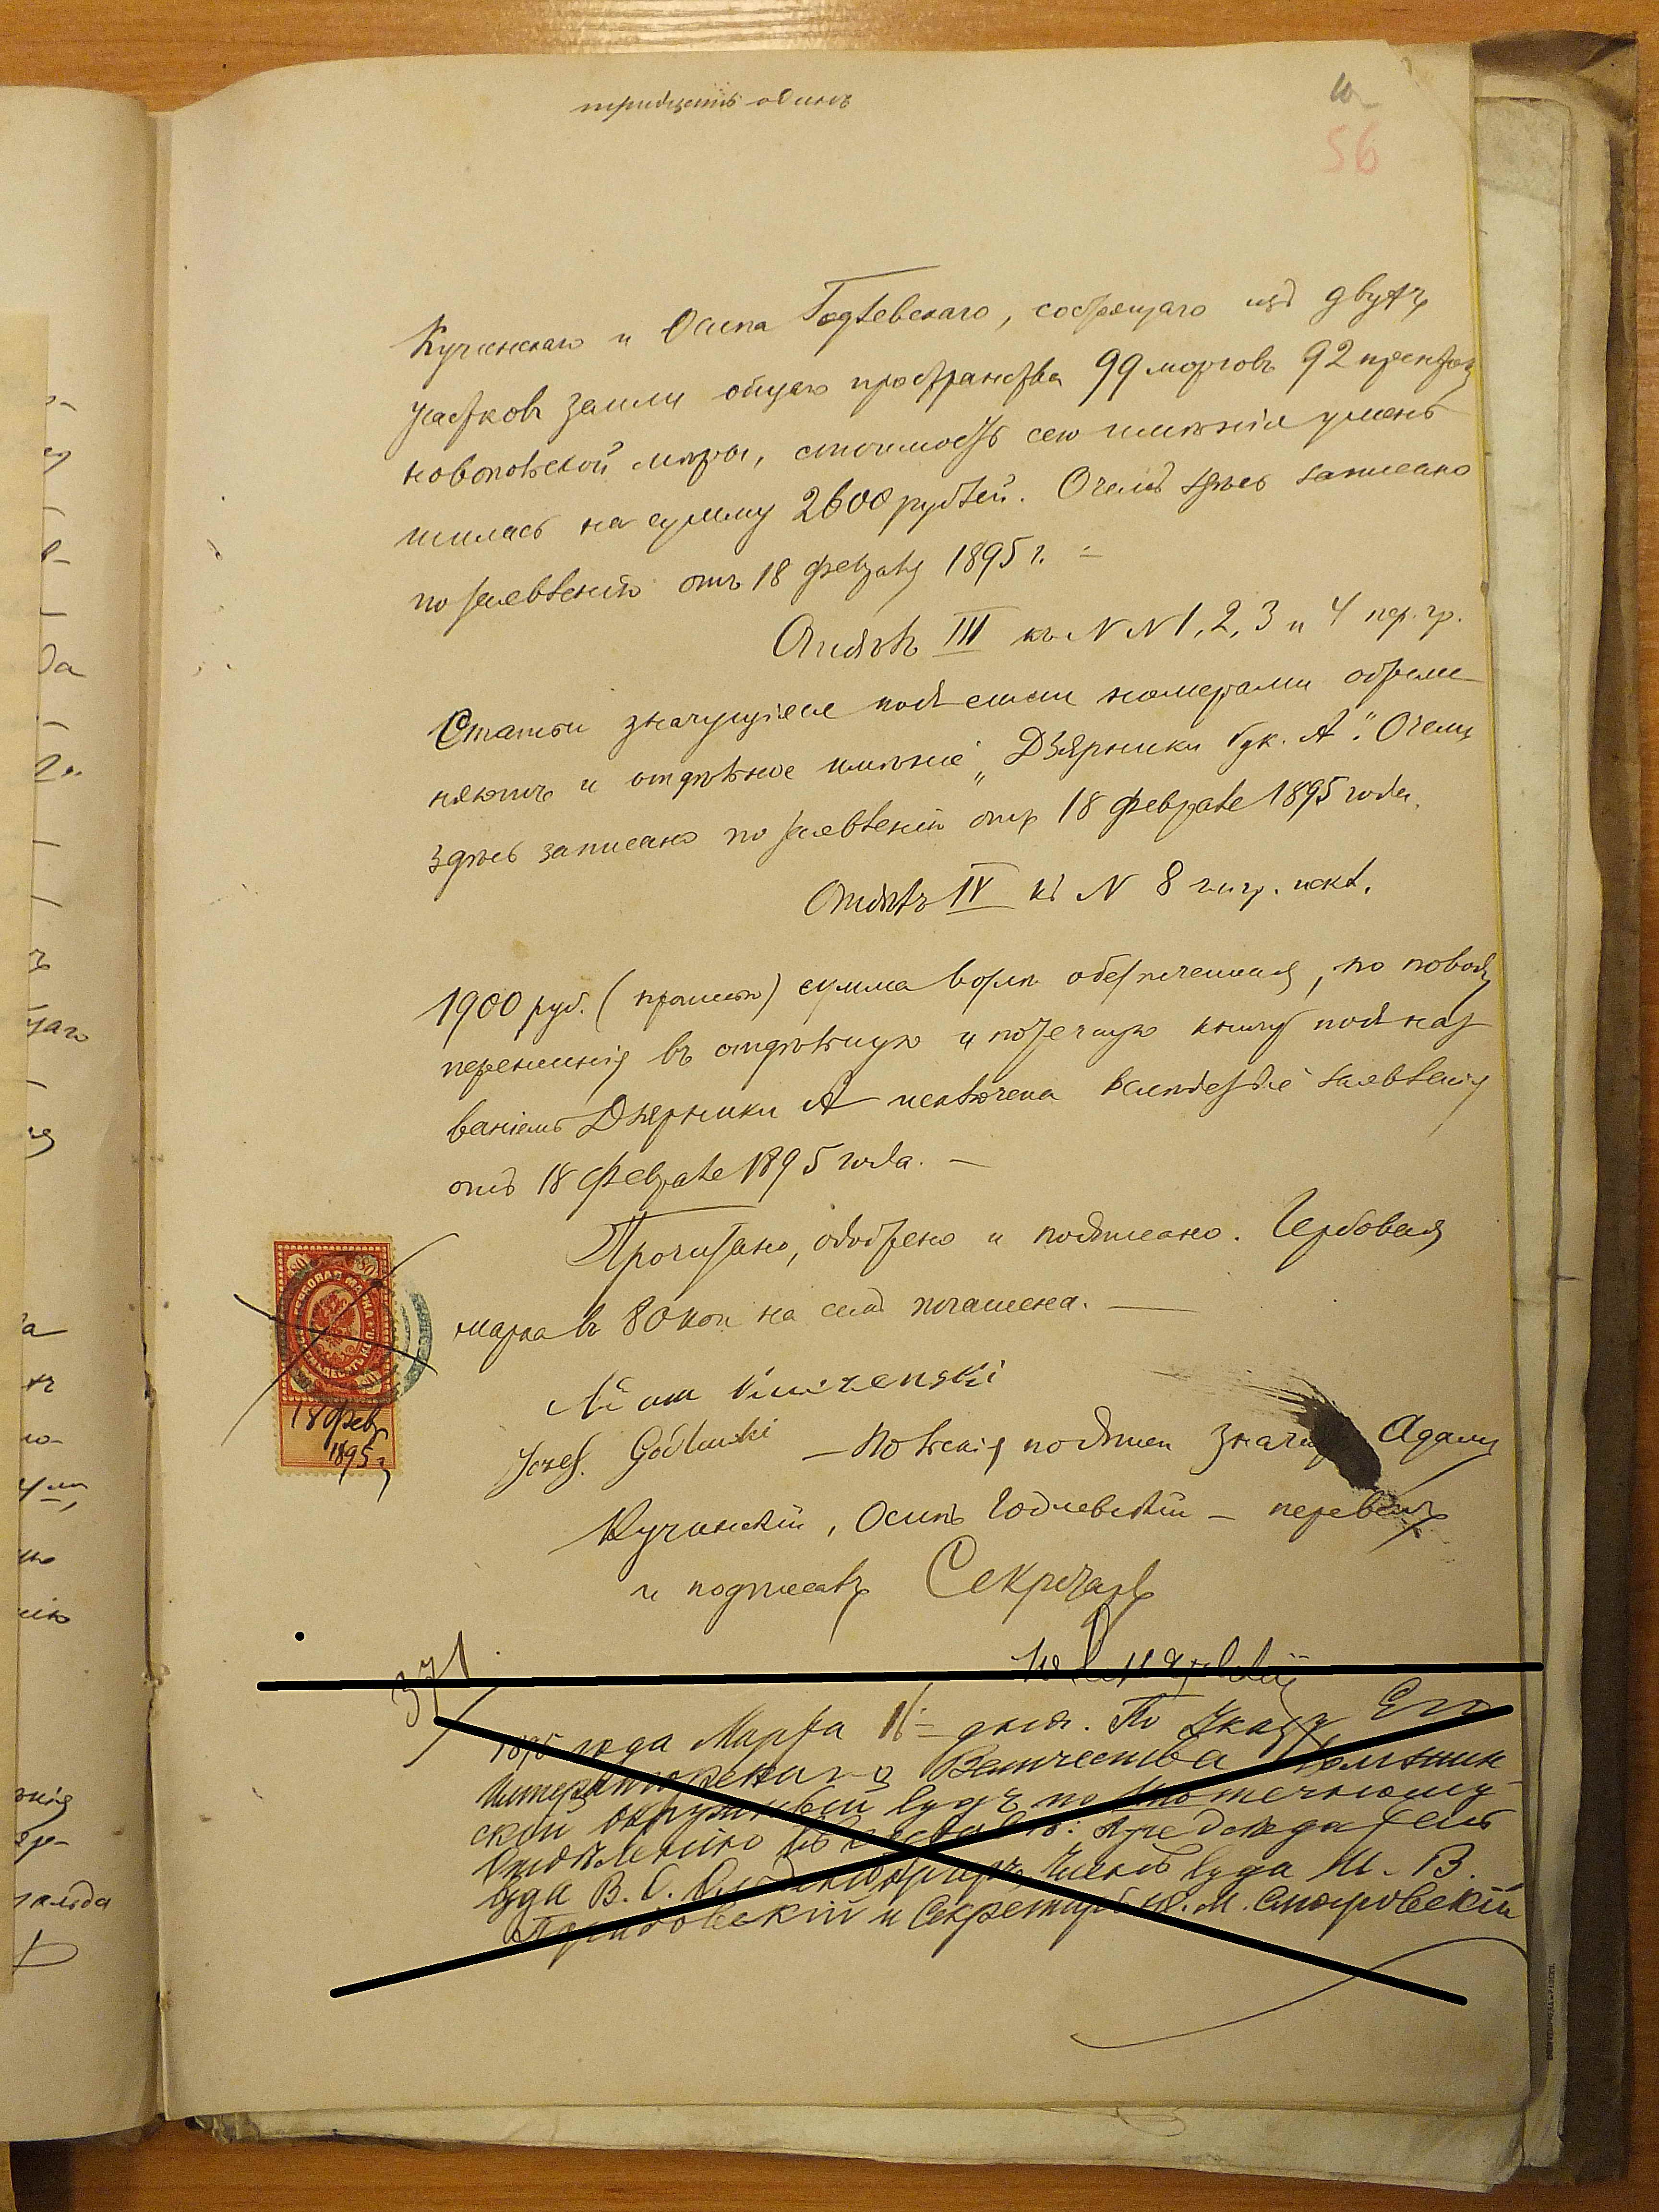 тридцать одинъ
56
Кучинскаго и Осипа Годлевскаго, состоящаго изъ двухъ
участковъ земли общаго пространства 99 морговъ 92 прентовъ
новопольской мѣры, стоимость сего имѣнія умень
шилась на сумму 2600 рублей. О чемъ здѣсь записано
по заявленію отъ 18 февраля 1895 г. =
Отдѣлъ III къ N N 1, 2, 3 и 4 пер. гр.
Статьи значущіяся подъ сими номерами обреме
няютъ и отдѣльное имѣніе „Дзярники бук. А“. О чемъ
здѣсь записано по заявленію отъ 18 февраля 1895 года.
Отдѣлъ IV къ N 8 гип. искл.
1900 руб. ( ) сумма возлѣ обезпеченная, по поводу
перенесенія въ отдѣльную ипотечную книгу подъ наз
ваніемъ Дзярники А исключена вслѣдствіе заявленія
отъ 18 февраля 1895 года. —
Прочитано, одобрено и подписано. Гербовая
марка въ 80 коп на семъ погашена. —
Adam Kuczenski
Jozef. Godlewski — Польскія подписи значатъ Адамъ
18 фев
1895 г
Кучинскій, Осипъ Годлевскій — перевелъ
и подписалъ Секретарь
371
1895 года Марта 16 дня. По Указу Его
Императорскаго Величества
скій окружный судъ по Ипотечному
Отдѣленію въ составѣ: Предсѣдатель
суда В. О. Членъ суда И. В.
и Секретарь М.